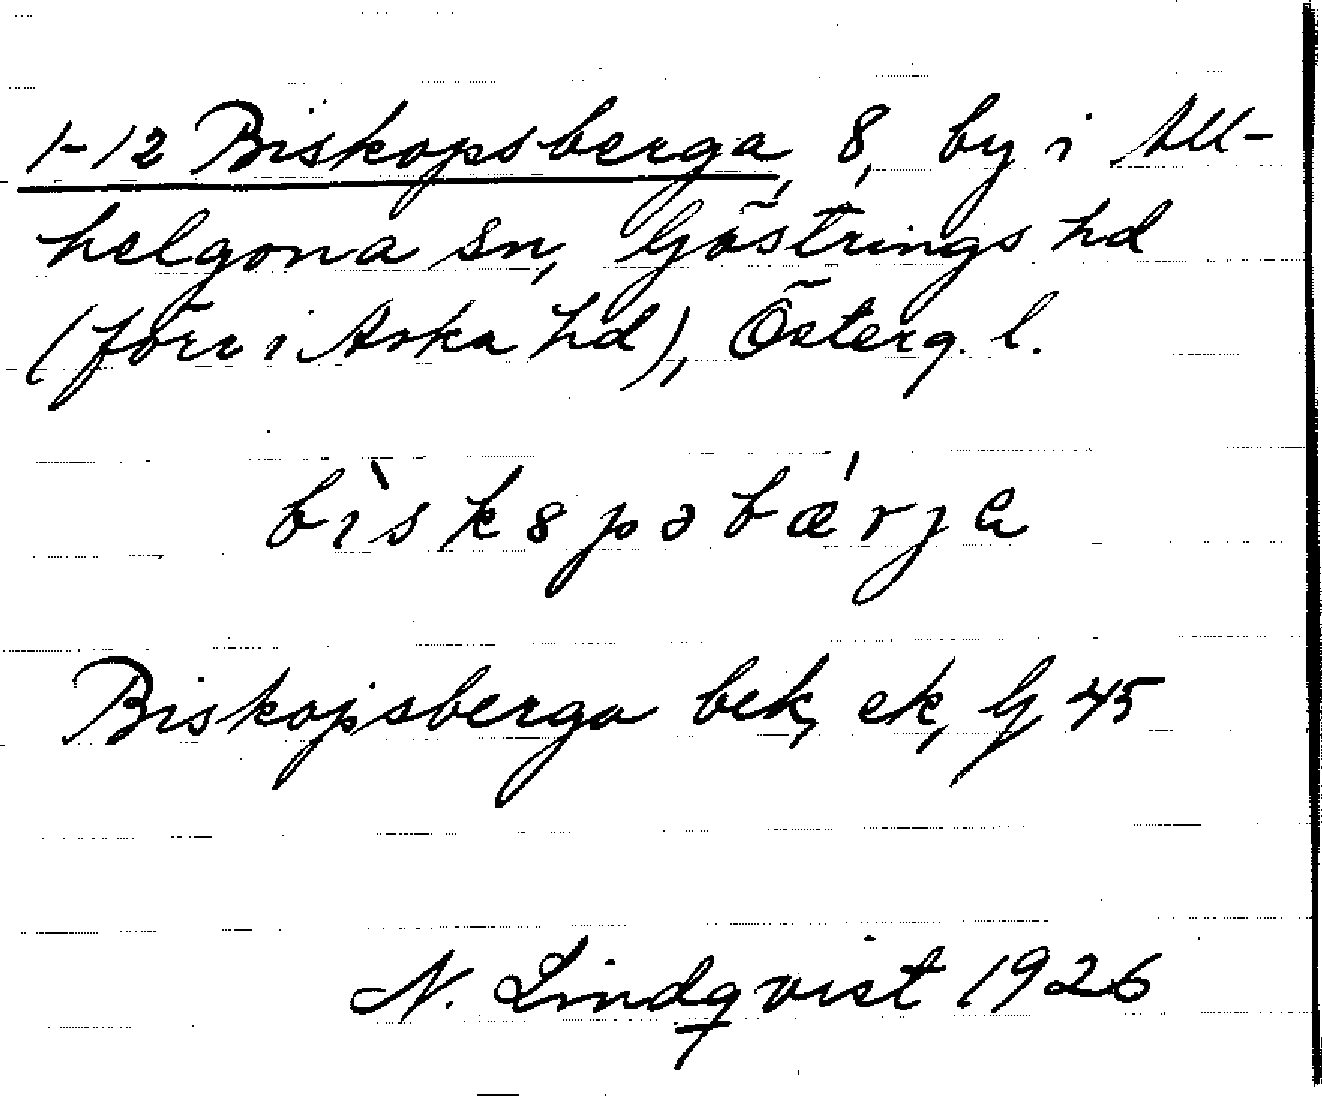 1-12 Biskopsberga, 8, by i All-
helgona sn, Göstrings hd
(förr i Aska hd), Österg. l.
bìskspəbǽrja
Biskopsberga bek, ek, G 45
N. Lindqvist 1926